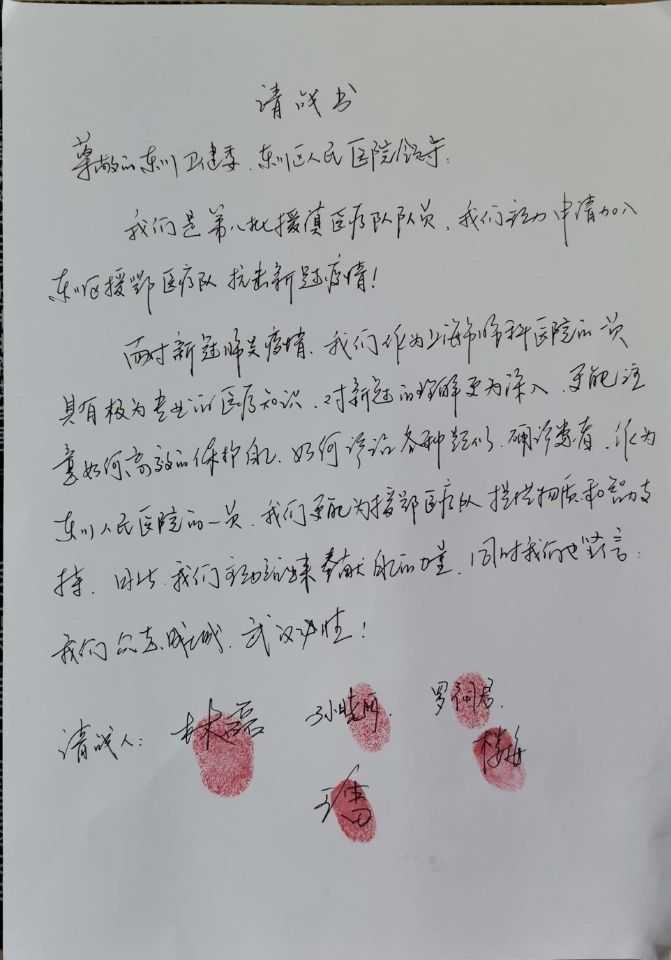 请战书
尊敬的东川卫健委、东川区人民医院领导:
我们是第八批援滇医疗队队员,我们主动申请加入
东川区援鄂医疗队抗击新冠疫情!
面对新冠肺炎疫情,我们作为上海市肺科医院的一员
具有极为专业的医疗知识,对新冠的理解更为深入,更能注
意如何高效的保护自己,如何诊治各种疑似、确诊患者,作为
东川人民医院的一员,我们更能为援鄂医疗队提供物质和智力支
持,因此,我们主动站出来奉献自己的力量,同时我们也坚信:
我们众志成城,武汉必胜!
请战人: 林磊